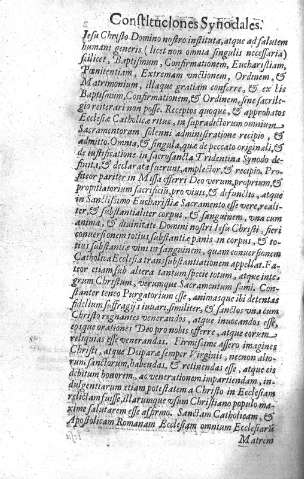 Constituciones Synodales.
Iesu Christo Domino nostro instituta, atque ad salutem
humani generis (licet non omnia singulis necessaria)
scilicet, Baptismum, Confirmationem, Eucharistiam,
Pœnitentiam, Extremam vnctionem, Ordinem, &
Matrimonium, illaque gratiam conferre, & ex his
Baptismum, Confirmationem, & Ordinem, sine sacrile-
gio reiterari non posse. Receptos quoque, & approbatos
Ecclesiæ Catholicæ ritus, in supradictorum omnium
Sacramentorum solenni administratione recipio, &
admitto. Omnia, & singula, quæ de peccato originali, &
de iustificatione in sacrosancta Tridentina Synodo defi-
nita, & declarata fuerunt, amplector, & recipio. Pro-
fiteor pariter in Missa offerri Deo verum, proprium, &
propitiatorium sacrificium, pro viuis, & defunctis, atque
in Sanctissimo Eucharistiæ Sacramento esse vere, reali-
ter, & substantialiter corpus, & sanguinem, vna cum
anima, & diuinitate Domini nostri Iesu Christi, fieri
conuersionem totius substantiæ panis in corpus, & to-
tius substantiæ vini in sanguinem, quam conuersionem
Catholica Ecclesia transsubstantiationem appellat. Fa-
teor etiam sub altera tantum specie totum, atque inte-
grum Christum, verumque Sacramentum sumi. Con-
stanter teneo Purgatorium esse, animasque ibi detentas
fidelium suffragijs iuuari, similiter, & sanctos vna cum
Christo regnantes venerandos, atque inuocandos esse,
eosque orationes Deo pro nobis offerre, atque eorum
reliquias esse venerandas. Firmissime assero imagines
Christi, atque Deiparæ semper Virginis, necnon alio-
rum sanctorum, habendas, & retinendas esse, atque eis
debitum honorem, ac venerationem impartiendam, in-
dulgentiarum etiam potestatem a Christo in Ecclesiam
relictam fuisse, illarumque vsum Christiano populo ma-
xime salutarem esse affirmo. Sanctam Catholicam, &
Apostolicam Romanam Ecclesiam omnium Ecclesiarũ
Matrem